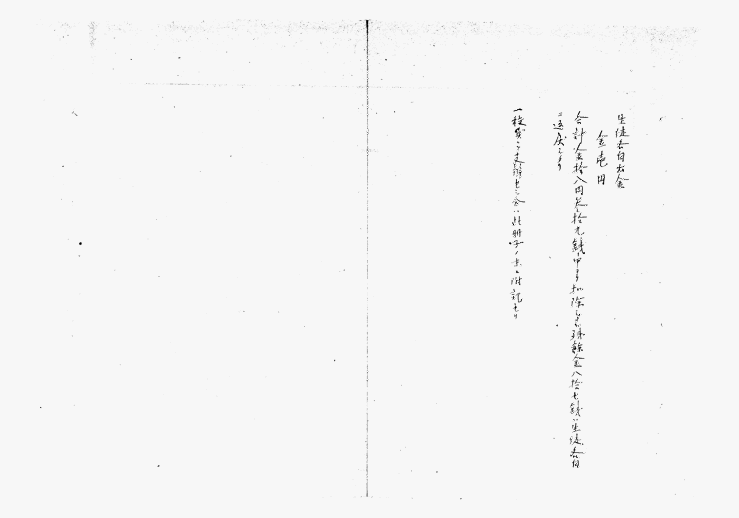 生徒各自出金
金壱円
合計金拾八円弐拾九銭中ヨリ扣除シ残余金八拾七銭ハ生徒各自
ニ返戻シタリ
一校費ニテ支辨セシ分ハ此冊子ノ末ニ附記セリ